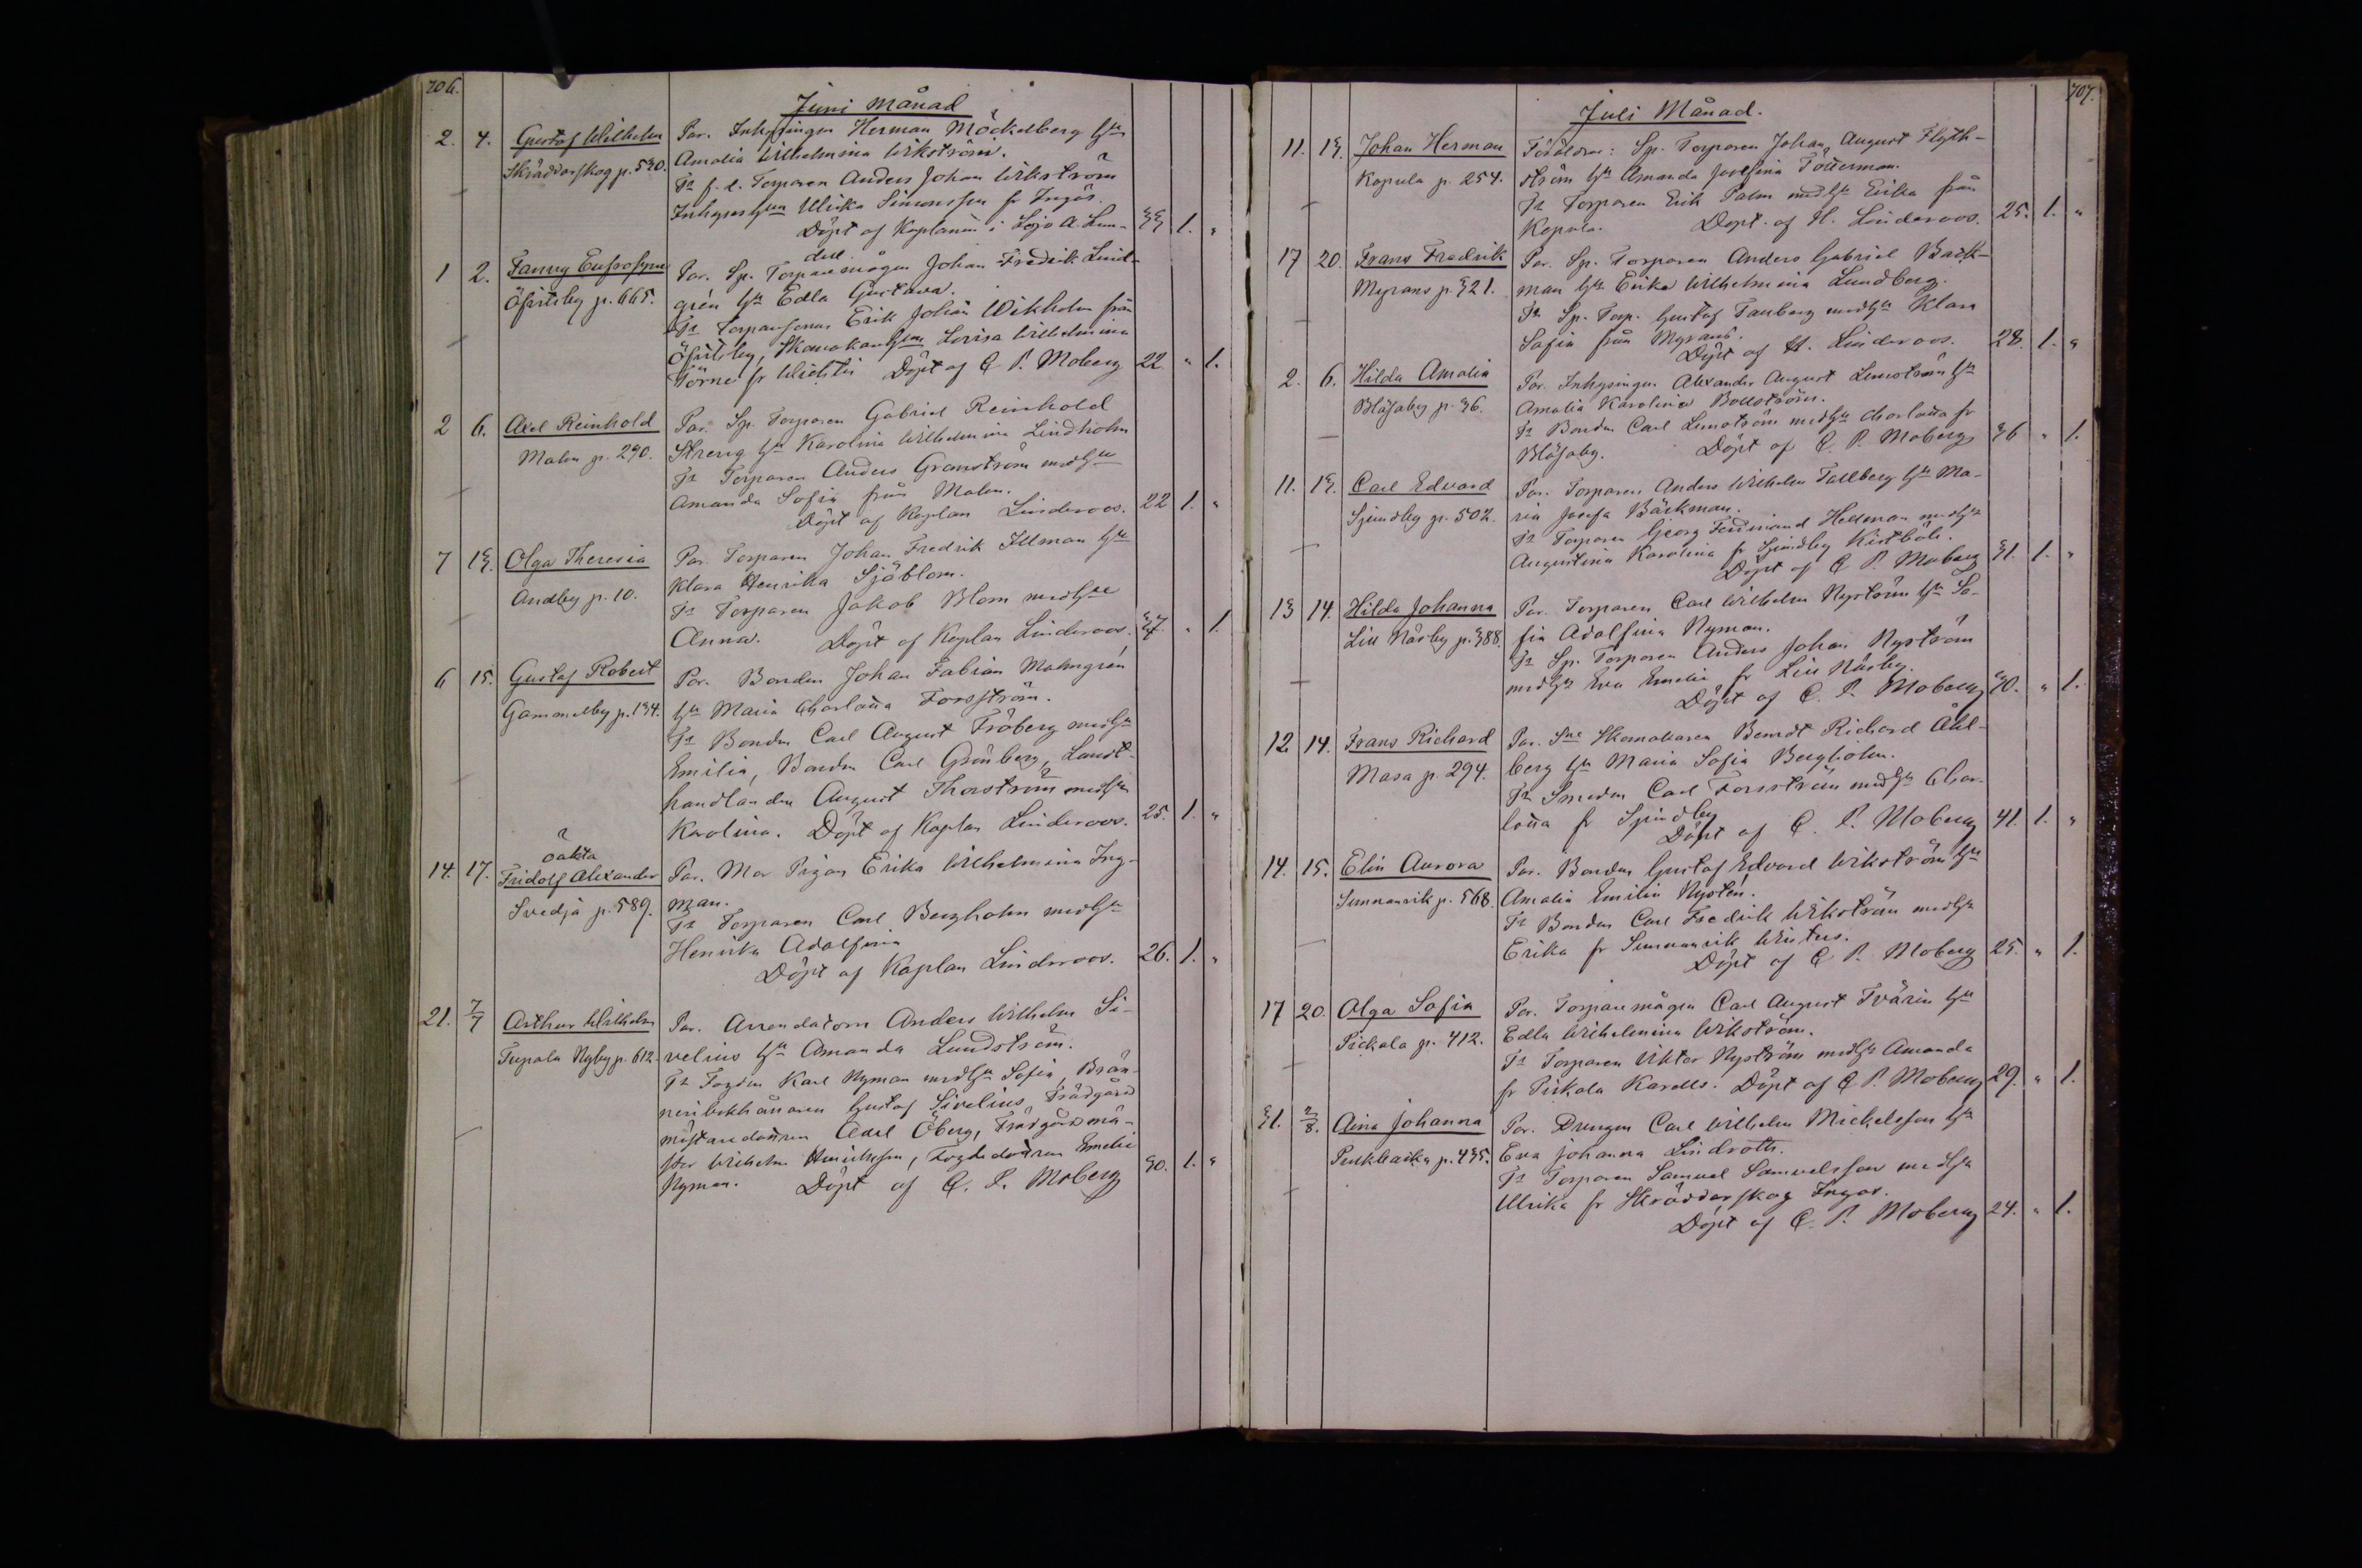 706.
Juni Månad
2. 4. Gustaf Wilhelm Par. Inhysingen Herman Möckelberg hu
Skräddarskog p. 530. Amalia Wilhelmina Wikström.
Fr f. d. Torparen Anders Johan Wikström
Inhyses hun Ulrika Simonsson fr Ingås.
Döpt af Kaplanen i Lojo A. Lun- 33 1. "
dell.
1 2. Fanny Eufrosyne Par. Sp. Torparemågen Johan Fredrik Lind-
Öfvitsby p. 665. grén hu Edla Gustava.
Fr Torparsonen Erik Johan Wikholm från
Öfvitsby, Skomakarhun Lovisa Wilhelmina
Törne fr Wichtis Döpt af C P. Moberg 22 " 1.
2 6. Axel Reinhold Par. Sp. Torparen Gabriel Reinhold
Malm p. 290. Streng hu Karolina Wilhelmina Lindholm
Fr Torparen Anders Granström med hu
Amanda Sofia från Malm.
Döpt af Kaplan Linderoos. 22 1. "
7 13. Olga Theresia Par. Torparen Johan Fredrik Illman hu
Andby p. 10. Klara Henrika Sjöblom.
Fr Torparen Jakob Blom med hu
Anna. Döpt af Kaplan Linderoos. " 1.
6 15. Gustaf Robert Par. Bonden Johan Fabian Malmgrén
Gammelby p. 134. hu Maria Charlotta Forsström.
Fr Bonden Carl August Fröberg med hu
Emilia, Bonden Carl Grönberg, Landt-
handlanden August Thorström med hu
Karolina. Döpt af Kaplan Linderoos. 25. 1. "
Oäkta
14. 17. Fridolf Alexander Par. Mor Pigan Erika Wilhelmina Ing-
Svedja p. 589. man.
Fr Torparen Carl Bergholm med hu
Henrika Adolfina
Döpt af Kaplan Linderoos. 26. 1. "
21. 7/7 Arthur Wilhelm Par. Arrendatorn Anders Wilhelm Si-
Nyby p. 612. velius hu Amanda Lundström.
Fr Fogden Karl Nyman med hu Sofia, Brän-
neribokhållaren Gustaf Sivelius, Trädgårds
mästaredottren Adel Öberg, Trädgårdsmä-
star Wilhelm Henriksson, Fogdedottren Emelie
Nyman. Döpt af C. P. Moberg 30. 1. "
707.
Juli Månad.
11. 13. Johan Herman Föräldrar: Sp. Torparen Johan August Flyth-
Kopula p. 254. ström hu Amanda Josefina Totterman.
Fr Torparen Erik Palm med hu Erika från
Kopula. Döpt. af H. Linderoos. 25. 1. "
17 20. Frans Fredrik Par. Sp. Torparen Anders Gabriel Back-
Myrans p. 321. man hu Erika Wilhelmina Lundberg.
Fr Sp. Torp. Gustaf Tauberg med hu Klara
Sofia från Myrans.
Döpt af H. Linderoos. 28. 1. "
2. 6. Hilda Amalia Par. Inhysingen Alexander August Lemström hu
Blåsaby p. 36. Amalia Karolina Bollström.
Fr Bonden Carl Lemström med hu Charlotta fr
Blåsaby. Döpt af C. P. Moberg 36 " 1.
11. 13. Carl Edvard Par. Torparen Anders Wilhelm Tallberg hu Ma-
Sjundby p. 502. ria Josefa Bäckman.
Fr Torparen Georg Ferdinand Hellman med hu
Augustina Karolina fr Sjundby Kistböle.
Döpt af C P. Moberg 31. 1. "
13 14. Hilda Johanna Par. Torparen Carl Wilhelm Nyström hu So-
Lill Näsby p. 388. fia Adolfina Nyman.
Fr Sp. Torparen Anders Johan Nyström
med hu Eva Emelie fr Lill Näsby.
Döpt af C. P. Moberg 30. " 1.
12 14. Frans Richard Par. Skomakaren Berndt Richard Åhl-
Masa p. 294. berg hu Maria Sofia Bergholm.
Fr Smeden Carl Forsström med hu Char-
lotta fr Sjundby
Döpt af C. P. Moberg 41. 1. "
14. 15. Elin Aurora Par. Bonden Gustaf Edvard Wikström hu
Sunnanvik p. 568. Amalia Emilia Nystén.
Fr Bonden Carl Fredrik Wikström med hu
Erika fr Sunnanvik
Döpt af C P. Moberg 25. " 1.
17 20. Olga Sofia Par. Torparemågen Carl August Tvärin hu
Pickala p. 412. Edla Wilhelmina Wikström.
Fr Torparen Viktor Nyström med hu Amanda
fr Pickala Karells. Döpt af C P. Moberg 29. " 1.
31. 2/8. Aina Johanna Par. Drengen Carl Wilhelm Mickelsson hu
p. 435. Eva Johanna Lindroth.
Fr Torparen Samuel Samuelsson med hu
Ulrika fr Skräddarskog Ingås.
Döpt af C. P. Moberg 24. " 1.